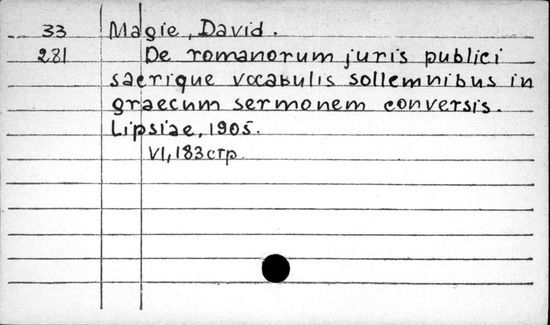 33 Magie, David.
281 De romanorum juris publici
sacrique vocabulis sollemnibus in
graecum sermonem conversis.
Lipsiae, 1905.
VI, 183 стр.